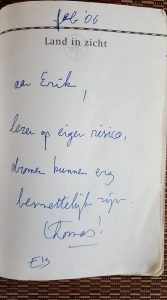 feb '06
Land in zicht
aan Erik,
lezen op eigen risico,
dromen kunnen erg
besmettelijk zijn.
Thomas!